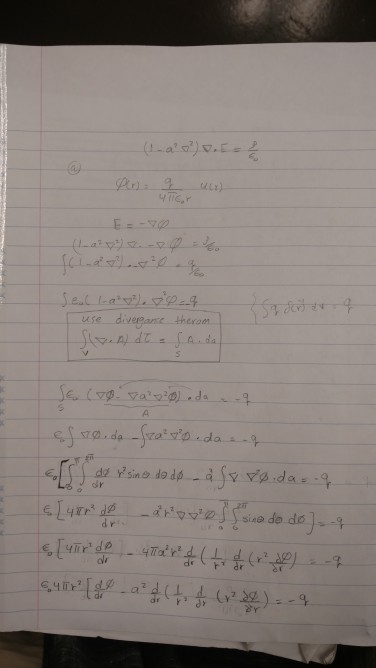 (1-a²∇²)∇·E = ρ/ε₀
ⓐ
φ(r) = q/4πε₀r u(r)
E = -∇φ
(1-a²∇²)∇·-∇φ = ρ/ε₀
∫(1-a²∇²)·-∇²φ = q/ε₀
∫ε₀(1-a²∇²)·∇²φ = -q { ∫q δ(r) dr = q
use divergance therom
∫_V (∇·A) dτ = ∫_S A·da
∫_S ε₀ (∇φ - ∇a²∇²φ)·da = -q
A
ε₀∫∇φ·da - ∫∇a²∇²φ·da = -q
ε₀[∫₀^π∫₀^2π dφ/dr r² sinθ dθ dφ - a²∫∇ ∇²φ·da = -q
ε₀[4πr² dφ/dr - a²r²∇∇²φ∫₀^π∫₀^2π sinθ dθ dφ] = -q
ε₀[4πr² dφ/dr - 4πa²r² d/dr (1/r² d/dr (r² ∂φ/∂r) = -q
ε₀4πr² [dφ/dr - a² d/dr (1/r² d/dr (r² ∂φ/∂r) = -q